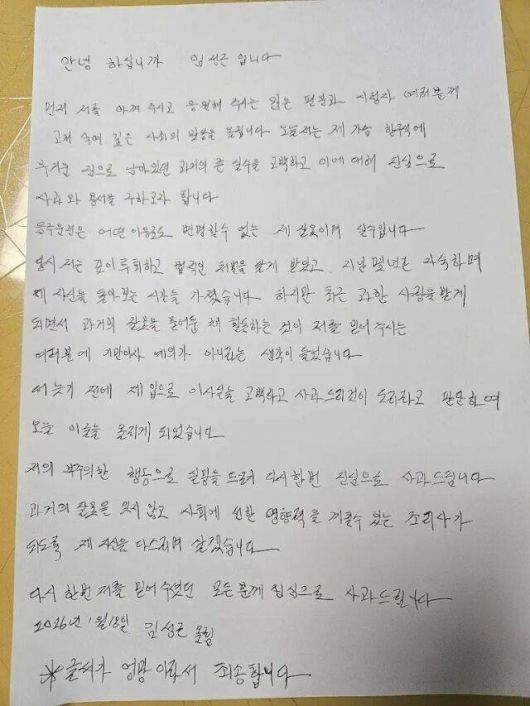 안녕 하십니까 임성근 입니다
먼저 저를 아껴 주시고 응원해 주시는 많은 팬분과 시청자 여러분께
고개 숙여 깊은 사죄의 말씀을 드립니다 오늘 저는 제 가슴 한구석에
무거운 짐으로 남아있던 과거의 큰 실수를 고백하고 이에 대해 진심으로
사과와 용서를 구하고자 합니다
음주운전은 어떤 이유로도 변명할수 없는 제 잘못이며 실수입니다
당시 저는 깊이 후회하고 법적인 처벌을 달게 받았고 지난 몇년간 자숙하며
제 자신을 돌아보는 시간을 가졌습니다 하지만 최근 과한 사랑을 받게
되면서 과거의 잘못을 묻어둔 채 활동하는 것이 저를 믿어 주시는
여러분에 기만이자 예의가 아니라는 생각이 들었습니다
더 늦기 전에 제 입으로 이사실을 고백하고 사과 드리것이 도리라고 판단하여
오늘 이글을 올리게 되었습니다
저의 부주의한 행동으로 실망을 드려 다시한번 진심으로 사과드립니다
과거의 잘못을 잊지 않고 사회에 선한 영향력을 끼칠수 있는 조리사가
되도록 제 자신을 다스리며 살겠습니다
다시 한번 저를 믿어 주셨던 모든분께 진심으로 사과드립니다
2026년 1월18일 임성근 올림
*글씨가 엉망 이라서 죄송합니다